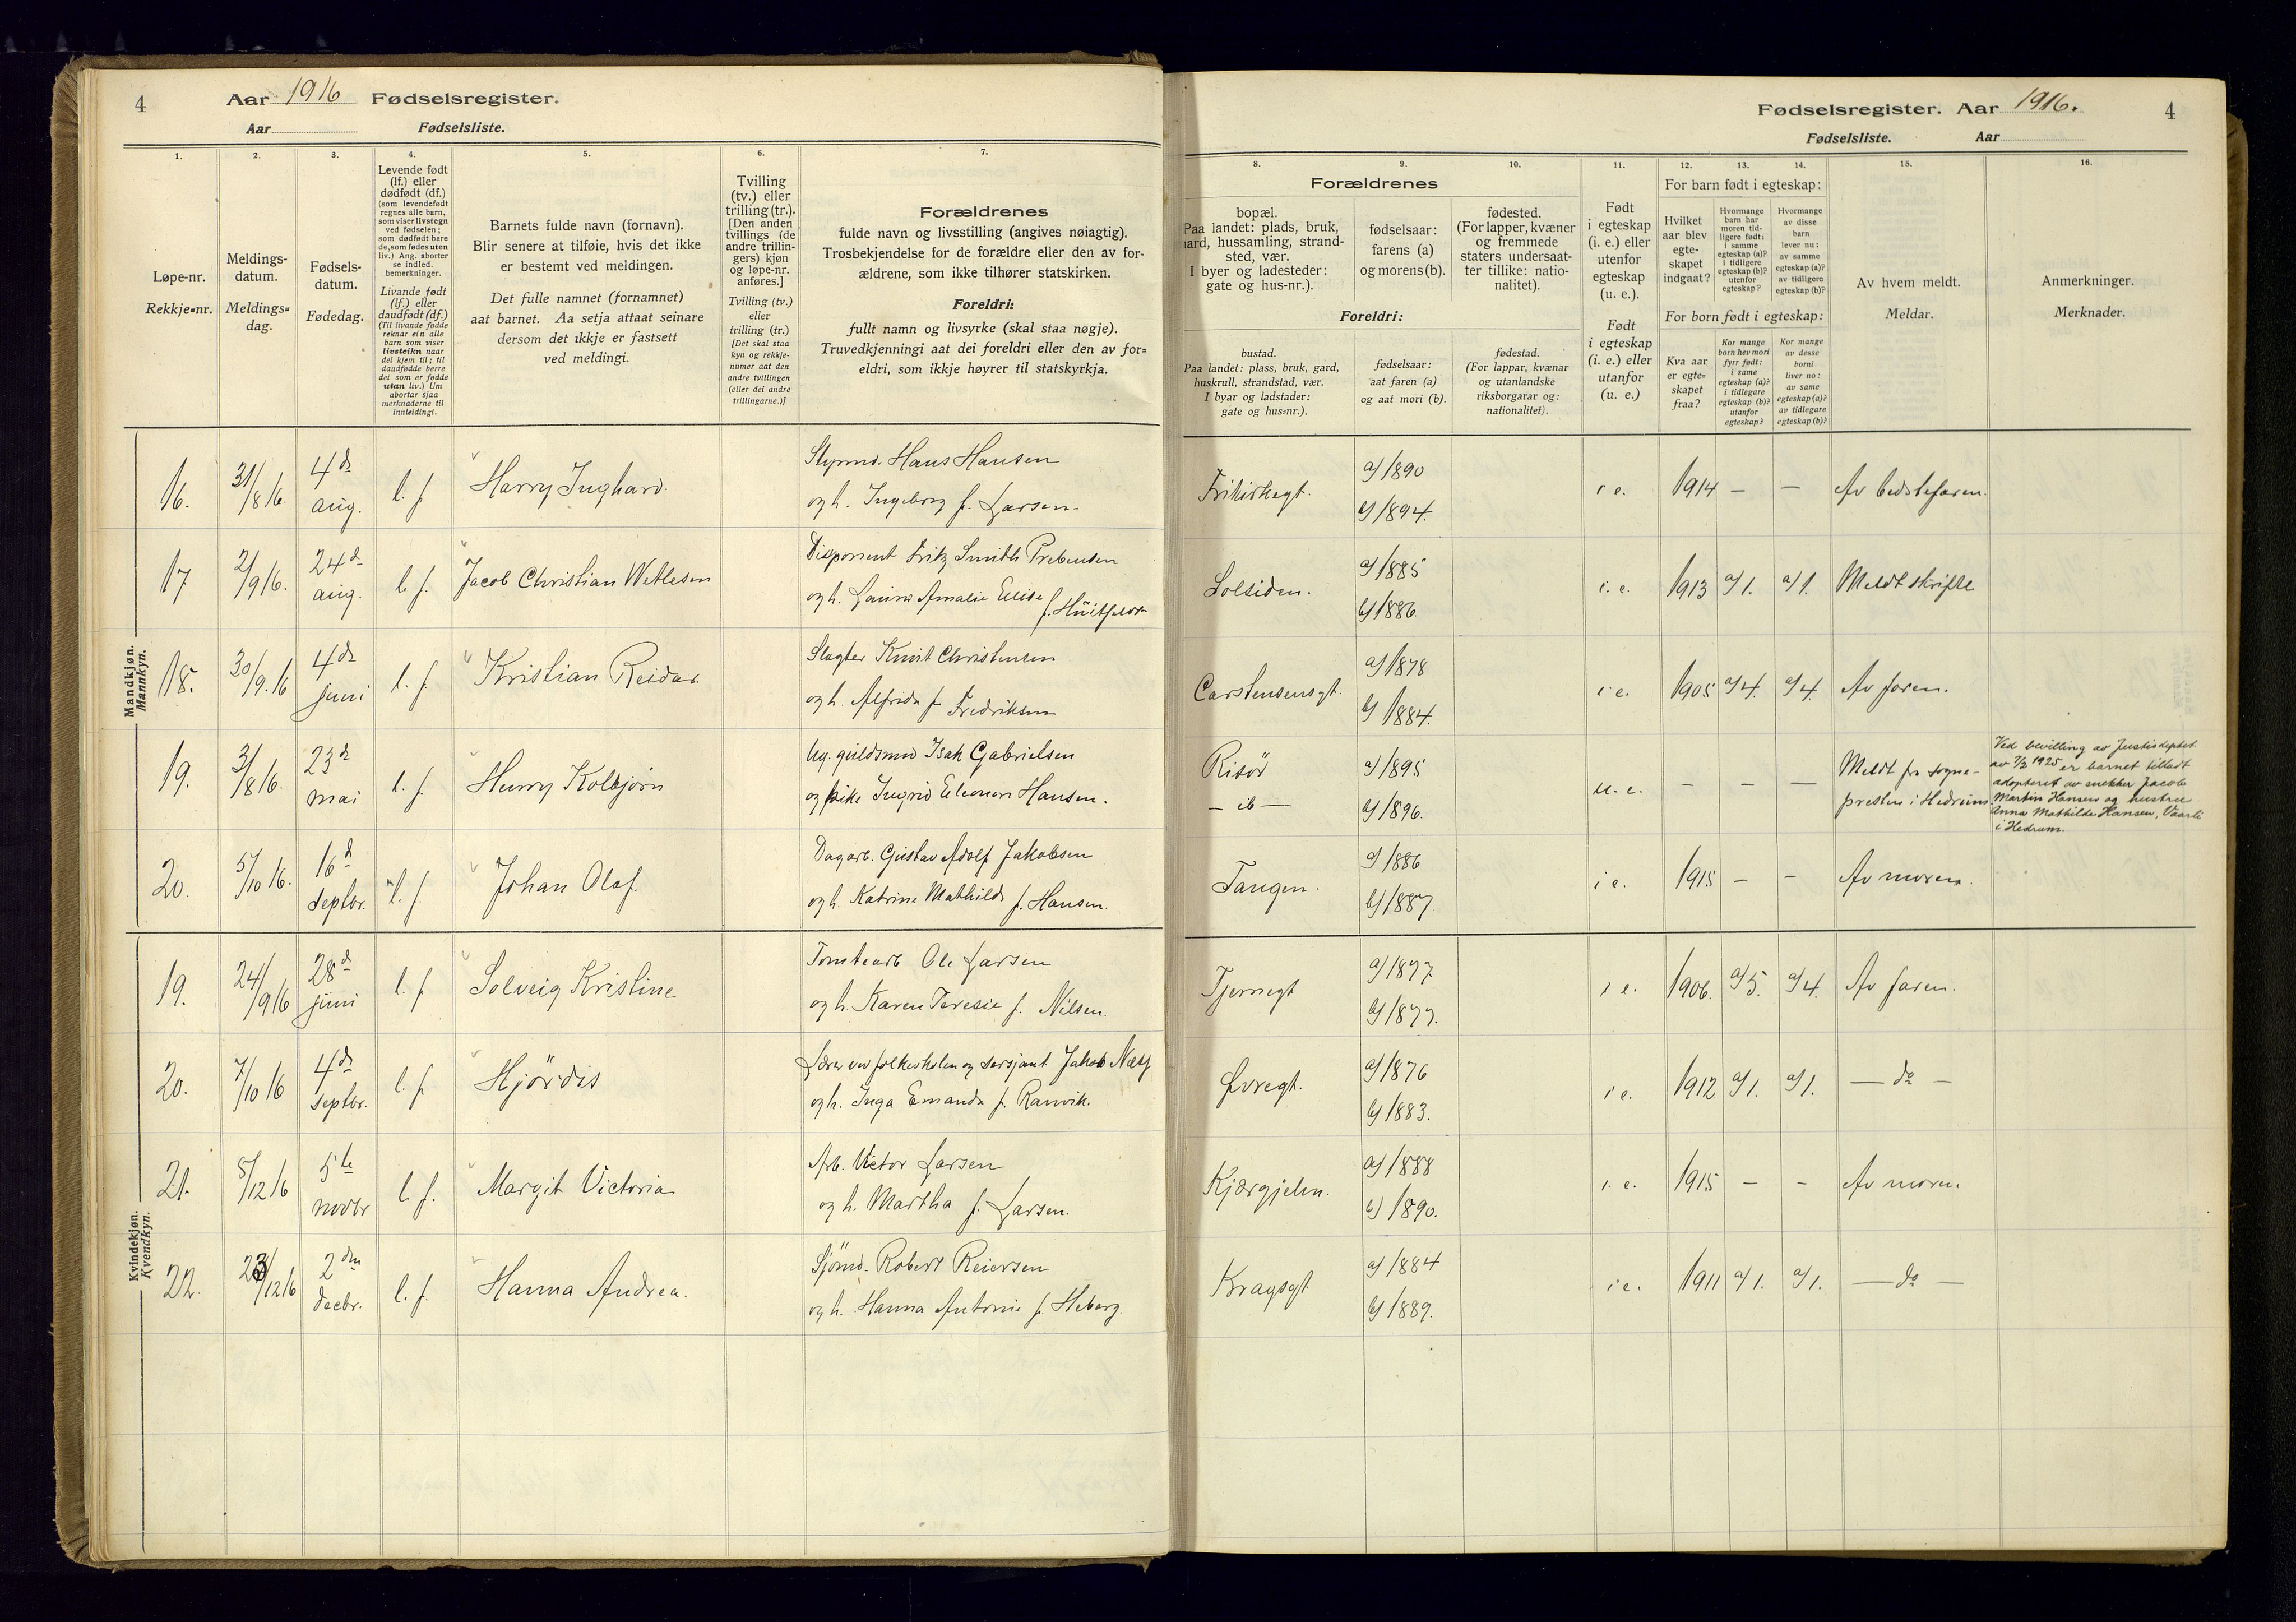 4
Aar 1916 Fødselsregister.
Aar Fødselsliste.
Fødselsregister. Aar 1916.
4
Fødselsliste. Aar
1.
Løpe-nr.
Rekkje=nr.
2.
Meldings-
datum.
Meldings=
dag.
3.
Fødsels-
datum.
Fødedag.
4.
Levende født
(lf.) eller
dødfødt (df.)
(som levendefødt
regnes alle barn,
som viser livstegn
ved fødselen;
som dødfødt bare
de, som fødes uten
liv.) Ang. aborter
se indled.
bemerkninger.
Livande født
(lf.) eller
daudfødt (df.)
(Til livande fødde
reknar ein alle
barn som viser
livsteikn naar
dei kjem til; til
daudfødde berre
dei som er fødde
utan liv.) Um
abortar sjaa
merknaderne til
innleidingi.
5.
Barnets fulde navn (fornavn).
Blir senere at tilføie, hvis det ikke
er bestemt ved meldingen.
Det fulle namnet (fornamnet)
aat barnet. Aa setja attaat seinare
dersom det ikkje er fastsett
ved meldingi.
6.
Tvilling
(tv.) eller
trilling (tr.).
[Den anden
tvillings (de
andre trillin-
gers) kjøn
og løpe-nr.
anføres.]
Tvilling (tv.)
eller
trilling (tr.)
[Det skal staa
kyn og rekkje-
numer aat den
andre tvillingen
(eller dei andre
trillingarne.)]
7.
Forældrenes
fulde navn og livsstilling (angives nøiagtig).
Trosbekjendelse for de forældre eller den av for-
ældrene, som ikke tilhører statskirken.
Foreldri:
fullt namn og livsyrke (skal staa nøgje).
Truvedkjenningi aat dei foreldri eller den av for=
eldri, som ikkje høyrer til statskyrkja.
8. 9. 10.
Forældrenes
bopæl.
Paa landet: plads, bruk,
gaard, hussamling, strand-
sted, vær.
I byer og ladesteder:
gate og hus-nr.).
fødselsaar:
farens (a)
og morens (b).
fødested.
(For lapper, kvæner
og fremmede
staters undersaat-
ter tillike: natio-
nalitet).
Foreldri:
bustad.
Paa landet: plass, bruk, gard,
huskrull, strandstad, vær.
I byar og ladstader:
gate og hus=nr.).
fødselsaar:
aat faren (a)
og aat mori (b).
fødestad.
(For lappar, kvænar
og utanlandske
riksborgarar og:
nationalitet).
11.
Født
i egteskap
(i. e.) eller
utenfor
egteskap
(u. e.).
Født
i egteskap
(i. e.) eller
utanfor
(u. e.)
12. 13. 14.
For barn født i egteskap:
Hvilket
aar blev
egte-
skapet
indgaat?
Hvormange
barn har
moren tid-
ligere født:
i samme
egteskap (a)?
i tidligere
egteskap (b)?
utenfor
egteskap?
Hvormange
av disse
barn
lever nu:
av samme
egteskap (a)?
av tidligere
egteskap (b)?
For born født i egteskap:
Kva aar
er egte=
skapet
fraa?
Kor mange
born hev mori
fyrr født:
i same
egteskap (a)?
i tidlegare
egteskap (b)?
utanfor
egteskap?
Kor mange
av desse
borni
liver no:
av same
egteskap (a)?
av tidlegare
egteskap (b)?
15.
Av hvem meldt.
Meldar.
16.
Anmerkninger.
Merknader.
Mandkjøn.
Mannkyn.
16. 31/8 16. 4de aug. l. f. Harry Inghard. Styrmd. Hans Hansen
og h. Ingeborg f. Larsen. Frikirkegt. a) 1890 b) 1894. i e. 1914 — — Av bedstefaren.
17 2/9 16. 24d aug. l. f. Jacob Christian Wetlesen Disponent Fritz Smith Prebensen
og h. Laura Amalie Elise f. Huitfeldt Solsiden. a) 1885 b) 1886. i. e. 1913 a/1. a/1. Meldt skriftl
18. 30/9. 16 4de juni l. f. Kristian Reidar. Slagter Knut Christensen
og h. Alfrida f. Fredriksen Carstensensgt. a) 1878 b) 1884. i e. 1905 a/4. a/4. Av faren.
19. 3/8 16. 23d mai l. f. Henry Kolbjørn Ug. guldsmed Isak Gabrielsen
og pike Ingrid Eleonora Hansen. Risör — ib — a) 1895 b) 1896. u. e. — — — Meldt fra sogne-
presten i Hedrum.
Ved bevilling av Justisdeptet
av 7/2 1925 er barnet tilladt
adopteret av snekker Jacob
Martin Hansen og hustru
Anna Mathilde Hansen,
i Hedrum.
20. 5/10 16. 16d septbr. l. f. Johan Olaf. Dagarb. Gustav Adolf Jakobsen
og h. Katrine Mathilde f. Hansen. Tangen. a) 1886 b) 1887. i e. 1915 — — Av moren.
Kvindekjøn.
Kvendkyn.
19. 24/9 16 28d juni l. f. Solveig Kristine Tomtearb Ole Larsen
og h. Karen Teresie f. Nilsen. Tjernegt a) 1877 b) 1877. i e. 1906. a/5. a/4. Av faren.
20. 7/10 16 4de septbr. l. f. Hjördis Lærer ved folkeskolen og sersjant Jakob Næss
og h. Inga Emanda f. Ranvik. Øvregt. a) 1876 b) 1883. i e. 1912 a/1. a/1. — do —
21. 5/12 16 5te novbr l. f. Margit Victoria Arb. Victor Larsen
og h. Martha f. Larsen. Kjærgjeln. a) 1888 b) 1890. i. e. 1915 — — Av moren.
22. 23/12 16 2den decbr. l. f. Hanna Andrea. Sjömd. Robert Reiersen
og h. Hanna Antonie f. Heberg. Kragsgt a) 1884 b) 1889. i e. 1911 a/1. a/1. — do —